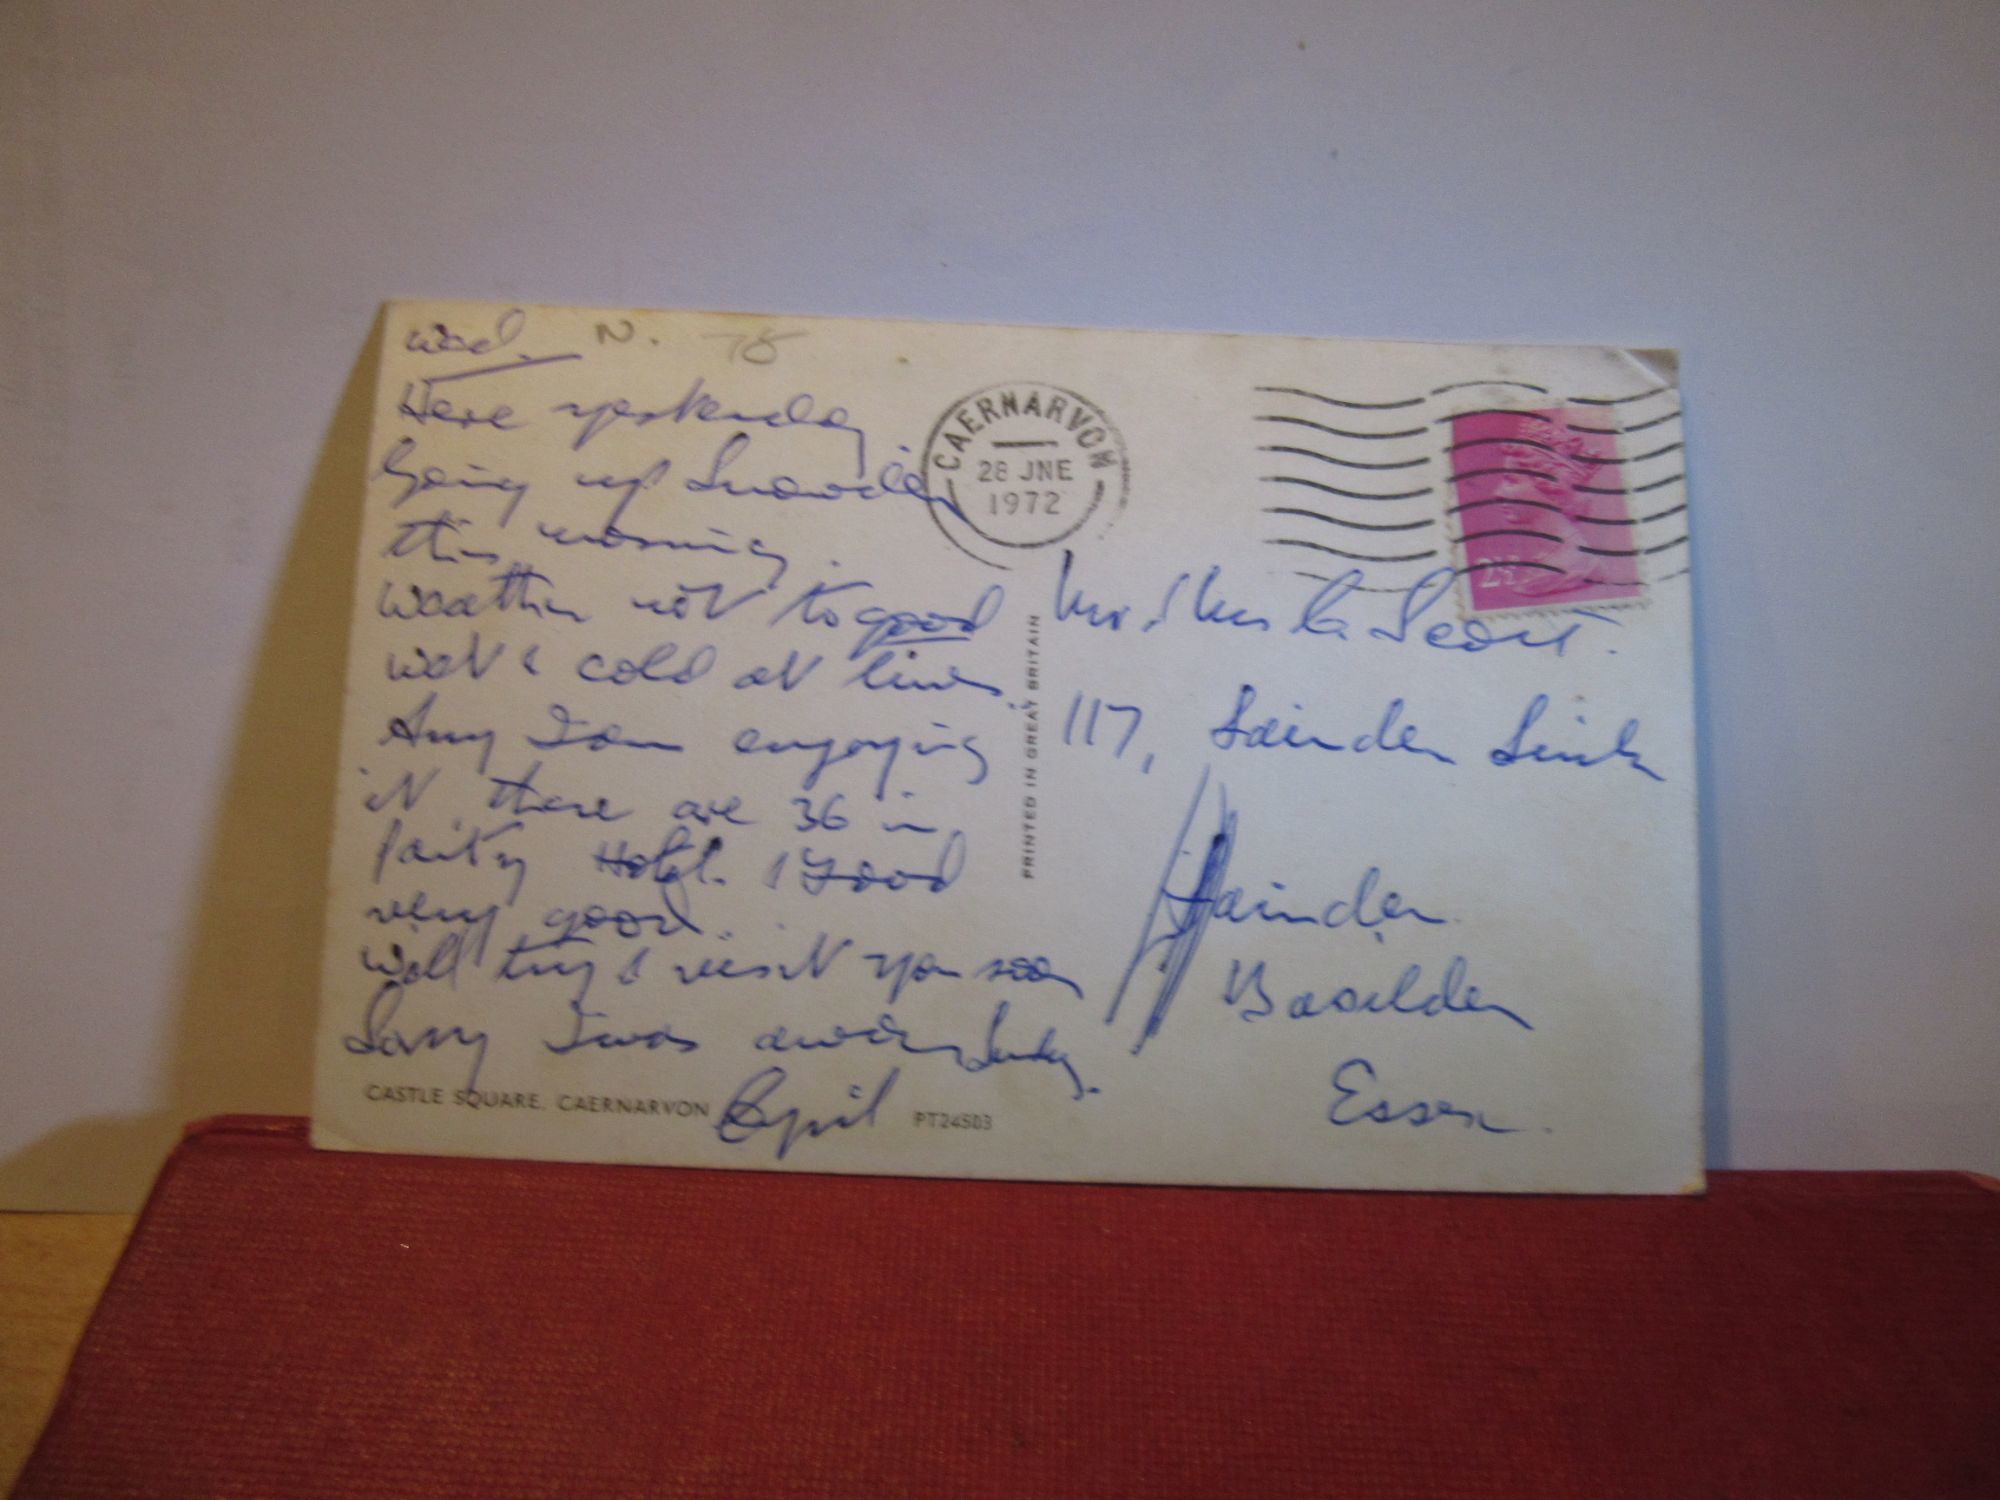 Wed. N. 75
Here yesterday.
Going up Snowdon
this morning.
Weather not to good
wet & cold at times.
Any I am enjoying
it there are 36 in
party Hotel & Food
very good.
Will try & visit you soon
Sorry I was away
April
CASTLE SQUARE, CAERNARVON
PT24503
PRINTED IN GREAT BRITAIN
CAERNARVON
28 JNE
1972
2½
Mr & Mrs Scott.
117, Laindon Link
Laindon
Basildon
Essex.